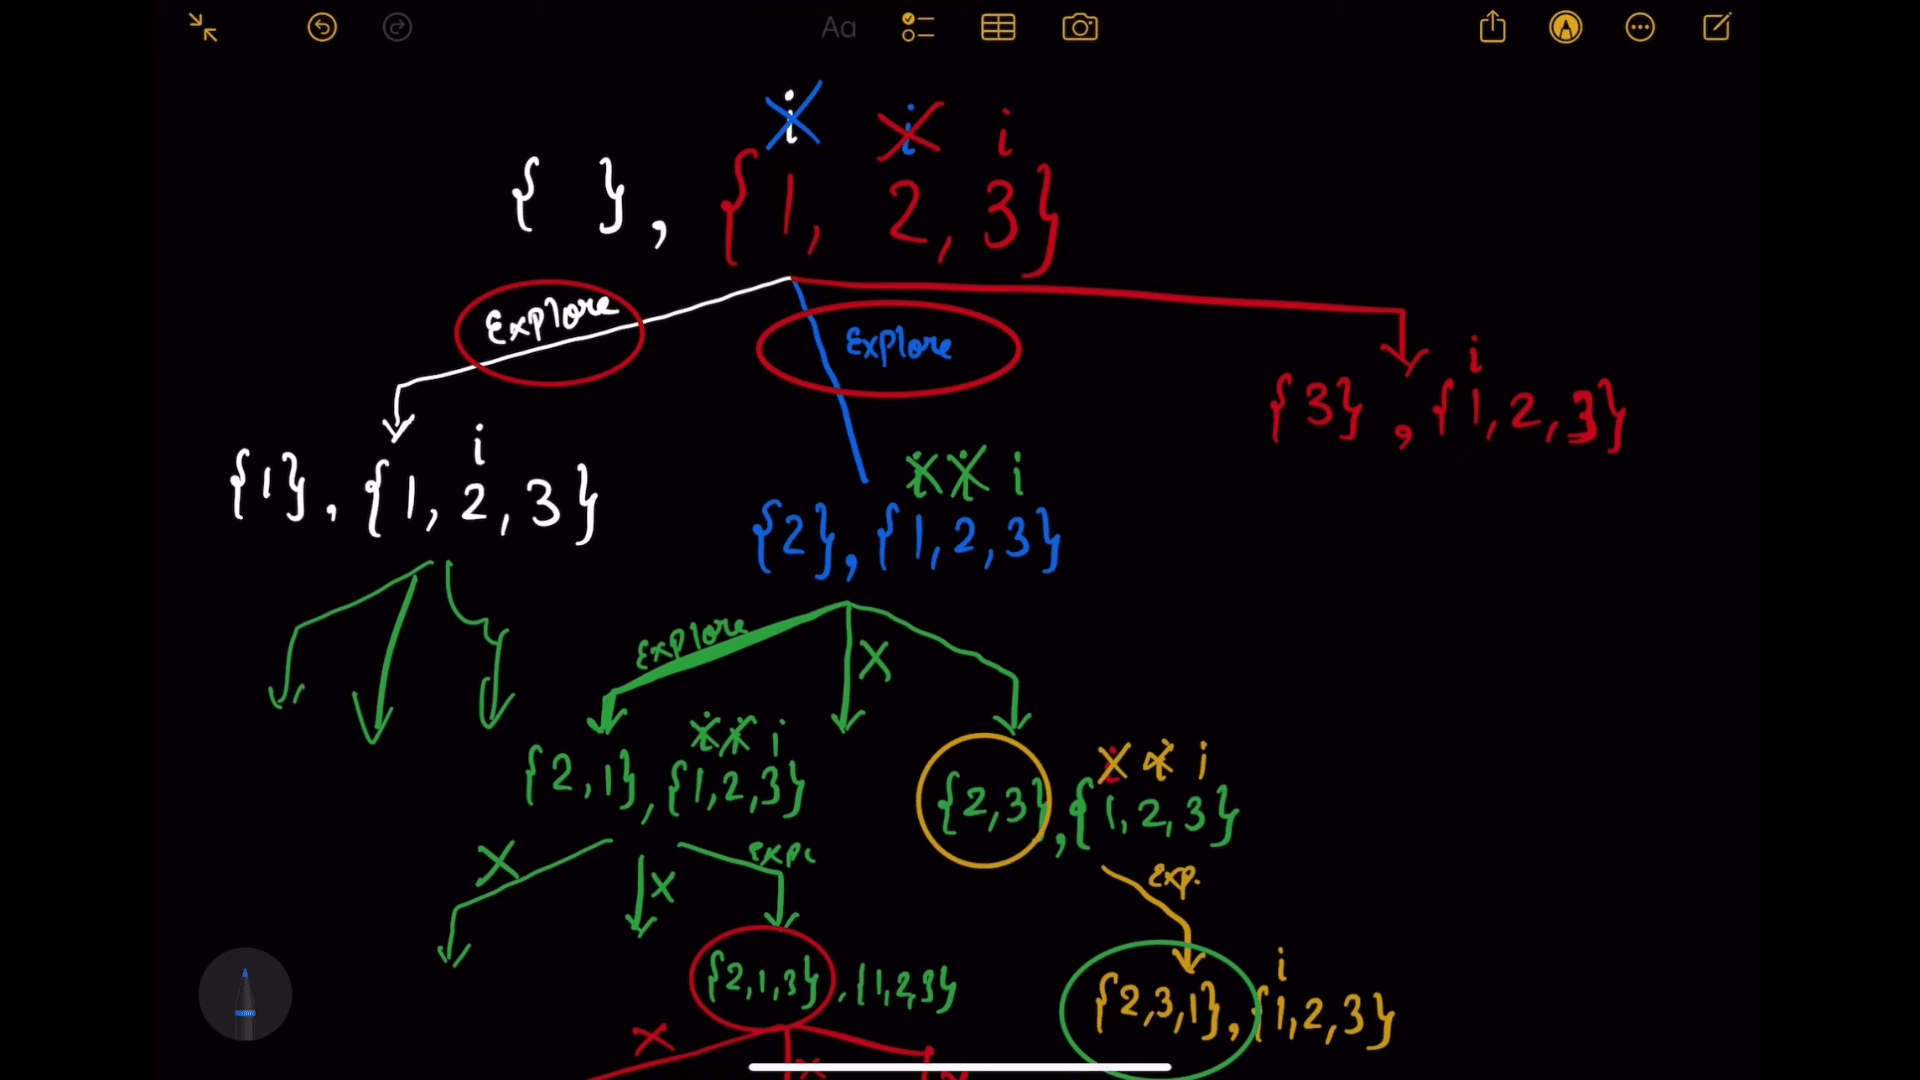 Aa
i i i
{ }, {1, 2, 3}
Explore Explore
i
{3}, {1, 2, 3}
i
{1}, {1, 2, 3}
i i i
{2}, {1, 2, 3}
Explore X
i i i
{2, 1}, {1, 2, 3}
i i i
{2, 3}, {1, 2, 3}
X X expl
exp.
{2, 1, 3}, {1, 2, 3}
i
{2, 3, 1}, {1, 2, 3}
X X